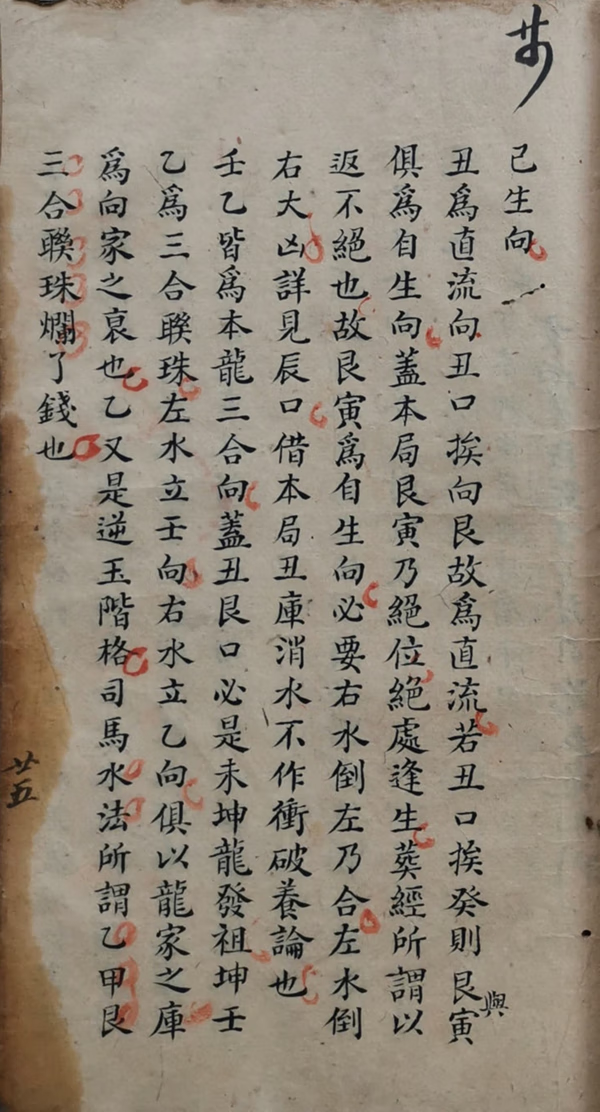 己生向
丑為直流向丑口挨向艮故為直流若丑口挨癸則艮寅
與
俱為自生向蓋本局艮寅乃絕位絕處逢生葬經所謂以
返不絕也故艮寅為自生向必要右水倒左乃合左水倒
右大凶詳見辰口借本局丑庫消水不作衝破養論也
壬乙皆為本龍三合向蓋丑艮口必是未坤龍發祖坤壬
乙為三合聯珠左水立壬向右水立乙向俱以龍家之庫
為向家之衰也乙又是逆玉階格司馬水法所謂乙甲艮
三合聯珠爛了錢也
廿五